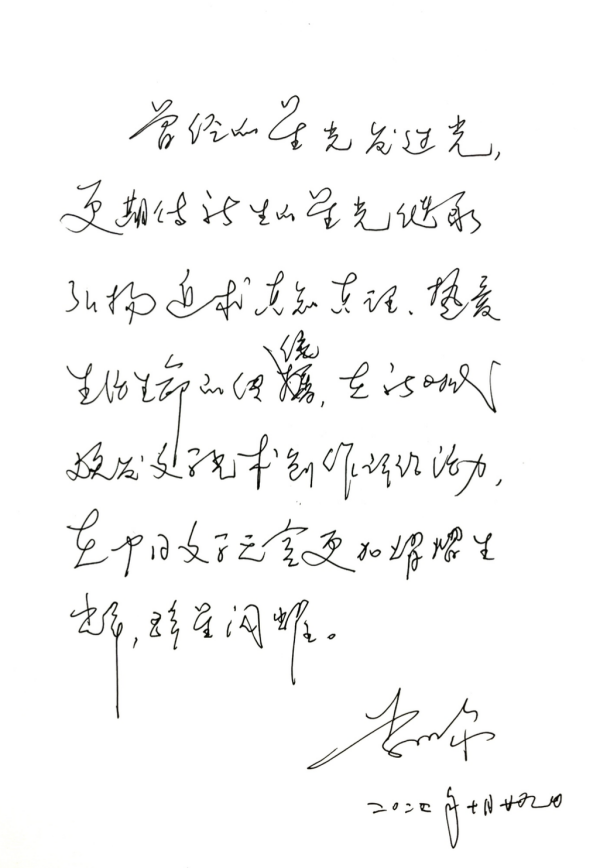 曾经的星光发过光,
更期待新生的星光继承
弘扬追求真知真理、热爱
生活生命的传统,在新时代
焕发文学艺术创作评论活力,
在中国文学天空更加熠熠生
辉,群星闪耀。
二〇二四年十月廿九日